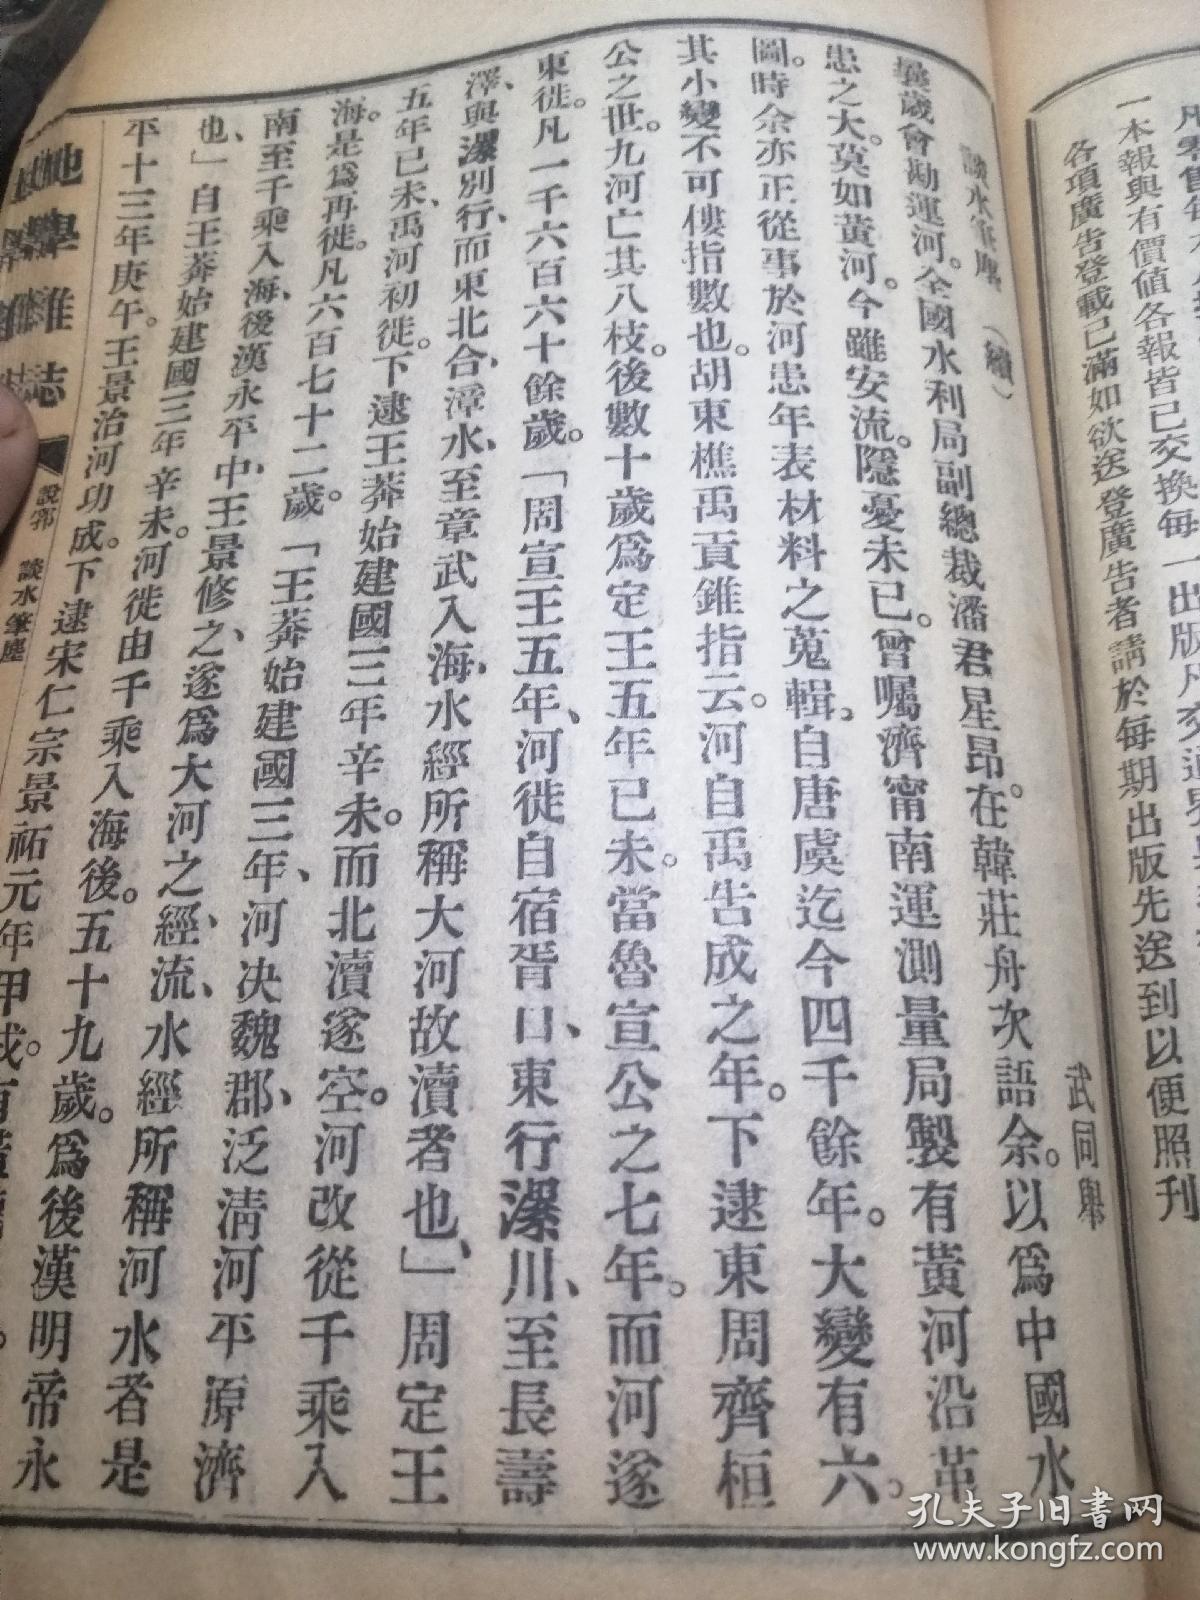 凡零售每
一出版凡交通
一本報與有價值各報皆已交換每
各項廣告登載已滿如欲送登廣告者請於每期出版先送到以便照刊
談水筆塵（續）
武同舉
曩歲會勘運河。全國水利局副總裁潘君星昂。在韓莊舟次語余。以爲中國水
患之大。莫如黃河。今雖安流。隱憂未已。曾囑濟甯南運測量局製有黃河沿革
圖。時余亦正從事於河患年表材料之蒐輯。自唐虞迄今四千餘年。大變有六。
其小變不可僂指數也。胡東樵禹貢錐指云。河自禹告成之年。下逮東周齊桓
公之世。九河亡其八枝。後數十歲爲定王五年己未。當魯宣公之七年。而河遂
東徙。凡一千六百六十餘歲。「周宣王五年、河徙自宿胥口、東行漯川、至長壽
澤、與漯別、行而東北、合漳水、至章武入海、水經所稱大河故瀆者也、」周定王
五年己未、禹河初徙。下逮王莽始建國三年辛未。而北瀆遂空。河改從千乘入
海。是爲再徙。凡六百七十二歲。「王莽始建國三年、河决魏郡、泛清河平原濟
南至千乘入海、後漢永平中、王景修之、遂爲大河之經流、水經所稱河水者是
也、」自王莽始建國三年辛未。河徙由千乘入海後。五十九歲。爲後漢明帝永
平十三年庚午。王景治河功成。下逮宋仁宗景祐元年甲戌。有
地學雜誌
說郛
談水筆塵
孔夫子旧书网
www.kongfz.com